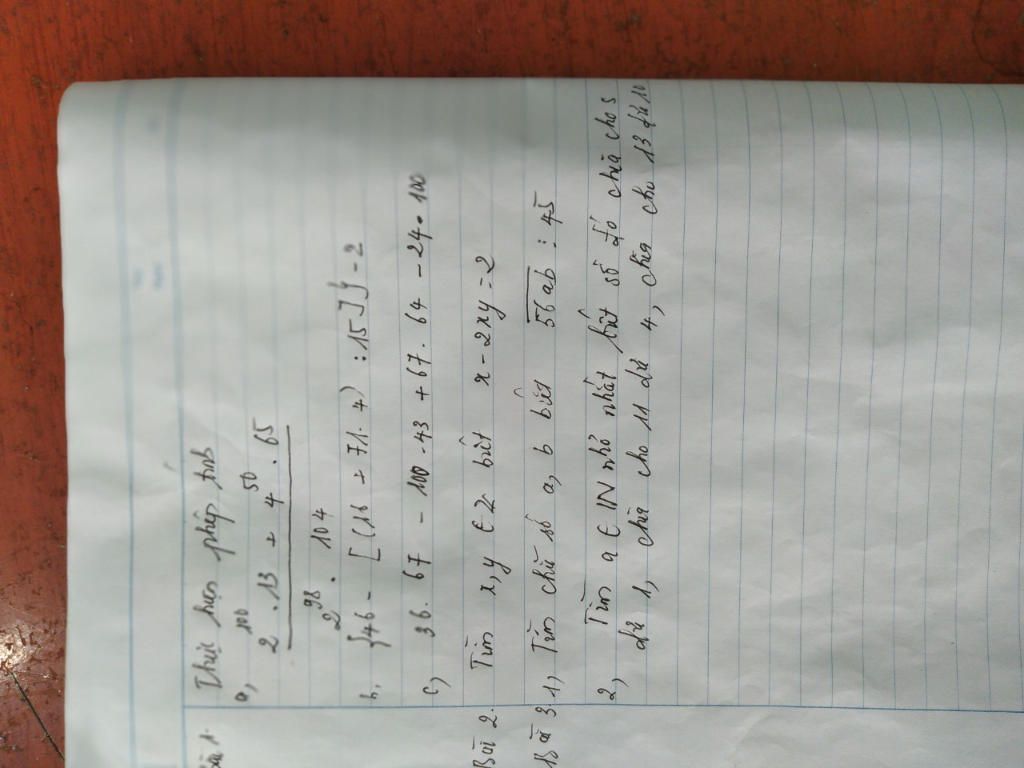 Bài 1. Thực hiện phép tính
a, 2^100 . 13 + 4^50 . 65
2^98 . 104
b, {46 - [(16 + 71. 4) : 15]} - 2
c, 36. 67 - 100 - 43 + 67. 64 - 24. 100
Bài 2. Tìm x, y ∈ Z biết x - 2xy = 2
Bài 3. 1, Tìm chữ số a, b biết 56ab ⋮ 45
2, Tìm a ∈ IN nhỏ nhất biết số đó chia cho 5
dư 1, chia cho 11 dư 4, chia cho 13 dư 10